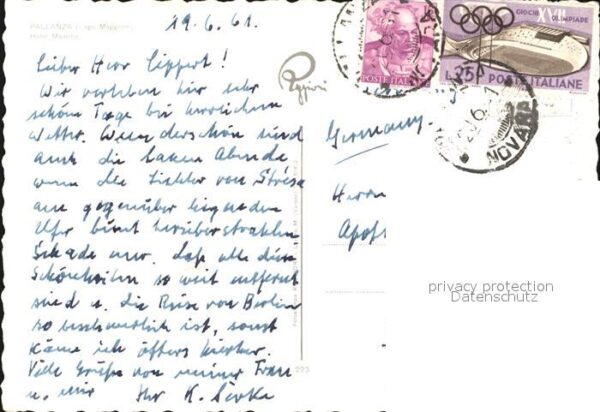 19.6.61.
PALLANZA (Lago Maggiore)
Hotel
Lieber Herr Lippert!
Wir verleben hier sehr
schöne Tage bei herrlichem
Wetter. Wunderschön sind
auch die lauen Abende
wenn die Lichter von Stresa
am gegenüber liegenden
Ufer bunt herüberstrahlen
Schade nur. Daß alle diese
Schönheiten so weit entfernt
sind u. die Reise von Berlin
so beschwerlich ist, sonst
käme ich öfters hierher.
Viele Grüße von meiner Frau
u. mir Ihr K.
223
POSTE ITALIANE
GIOCHI XVII OLIMPIADE
L. 35 POSTE ITALIANE
NOVARA
Germany.
Herrn
Apoth
privacy protection
Datenschutz